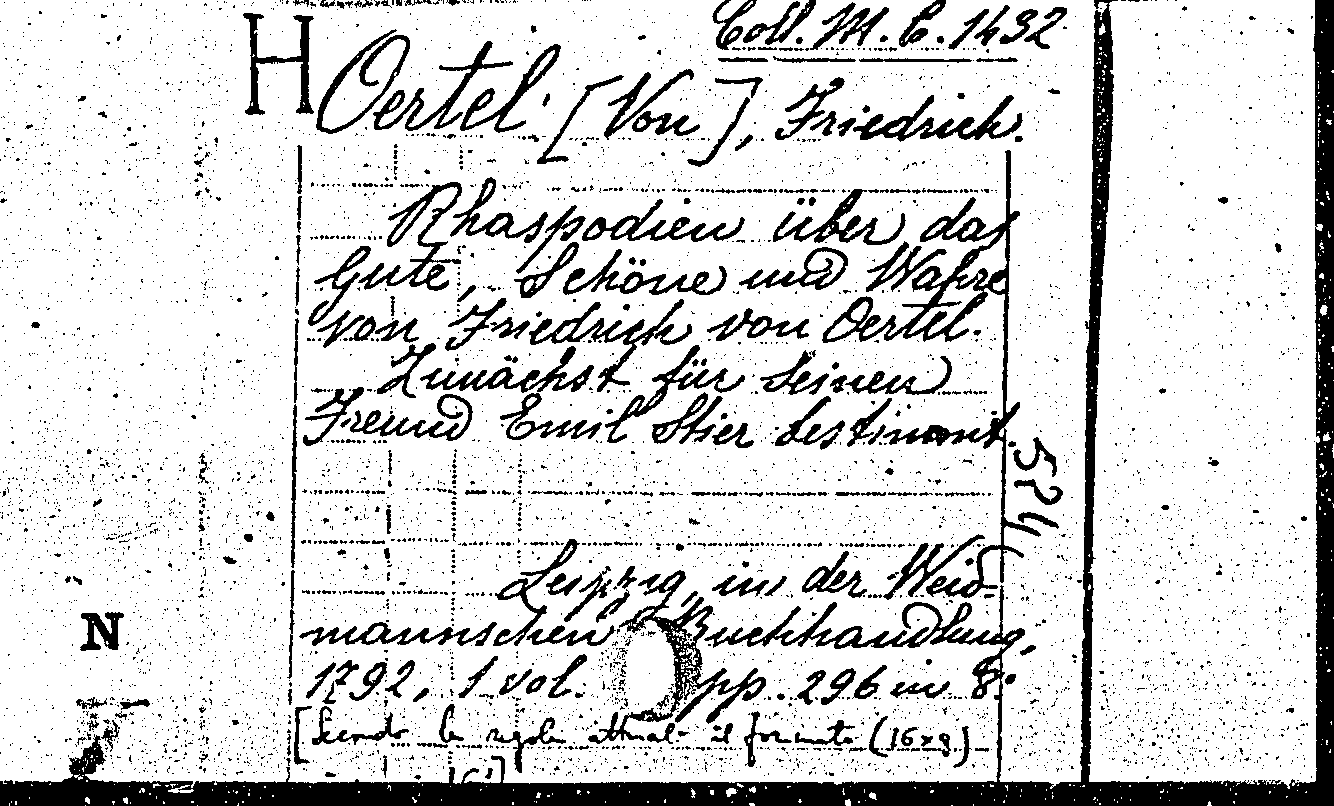 Coll. M. C. 1432
H Oertel [Von], Friedrich.
Rhaspodien über das
Gute, Schöne und Wahre
von Friedrich von Oertel.
Zunächst für Seinen
Freund Emil Stier bestimmt.
524
Leipzig, in der Weid-
mannschen Buchhandlung,
1792, 1 vol. pp. 296 in 8°
[Secondo le regole attuali il formato (16x9)
16°]
N